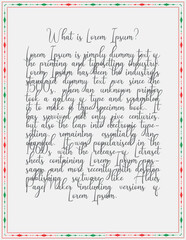 What is Lorem Ipsum?
Lorem Ipsum is simply dummy text of
the printing and typesetting industry.
Lorem Ipsum has been the industry's
standard dummy text ever since the
1500s, when an unknown printer
took a galley of type and scrambled
it to make a type specimen book. It
has survived not only five centuries,
but also the leap into electronic type-
setting, remaining essentially un-
changed. It was popularised in the
1960s with the release of Letraset
sheets containing Lorem Ipsum pas-
sages, and more recently with desktop
publishing software like Aldus
PageMaker including versions of
Lorem Ipsum.